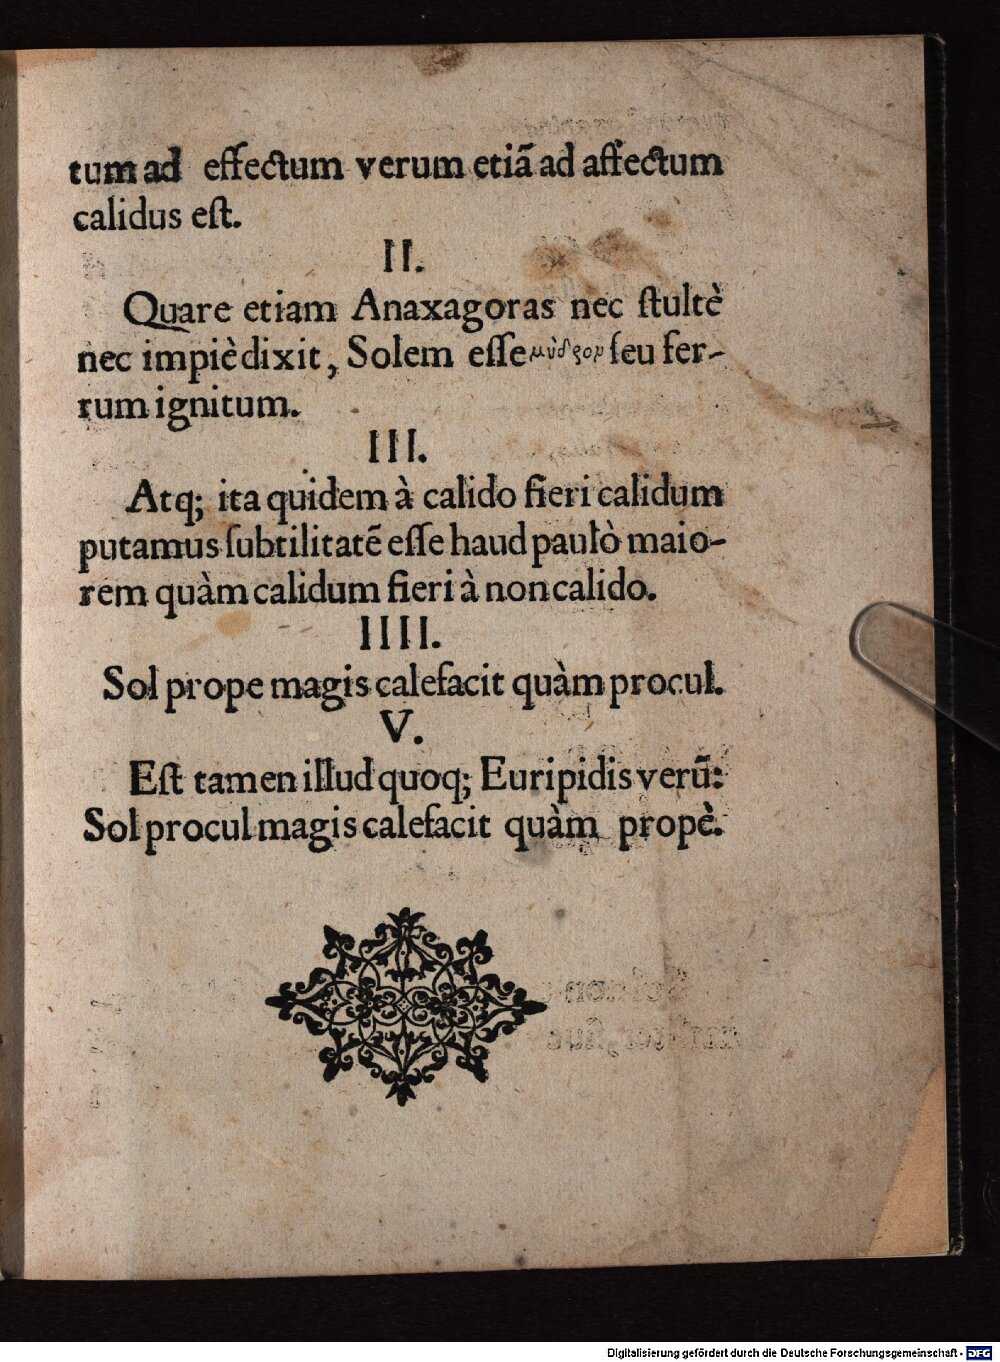 tum ad effectum verum etiã ad affectum
calidus eſt.
II.
Quare etiam Anaxagoras nec ſtultè
nec impiè dixit, Solem eſſe μύδρον ſeu fer-
rum ignitum.
III.
Atq; ita quidem à calido fieri calidum
putamus ſubtilitatẽ eſſe haud paulò maio-
rem quàm calidum fieri à non calido.
IIII.
Sol prope magis calefacit quàm procul.
V.
Eſt tamen illud quoq; Euripidis verũ:
Sol procul magis calefacit quàm propè.
Digitalisierung gefördert durch die Deutsche Forschungsgemeinschaft - DFG